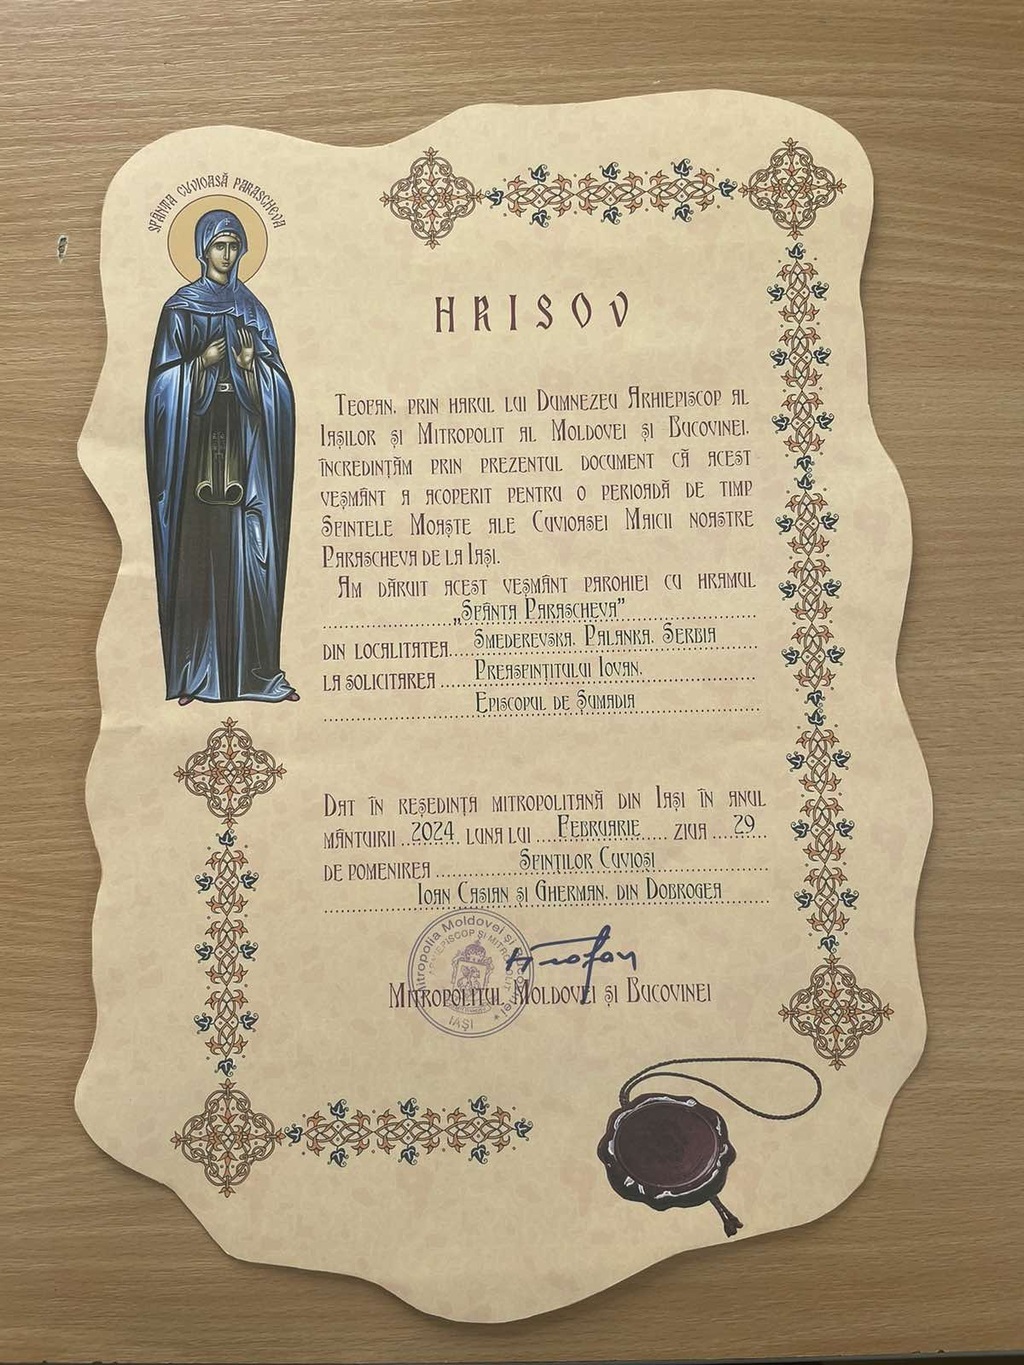 SFÂNTA CUVIOASĂ PARASCHEVA
HRISOV
TEOFAN, PRIN HARUL LUI DUMNEZEU ARHIEPISCOP AL
IAȘILOR ȘI MITROPOLIT AL MOLDOVEI ȘI BUCOVINEI,
ÎNCREDINȚĂM PRIN PREZENTUL DOCUMENT CĂ ACEST
VEȘMÂNT A ACOPERIT PENTRU O PERIOADĂ DE TIMP
SFINTELE MOAȘTE ALE CUVIOASEI MAICII NOASTRE
PARASCHEVA DE LA IAȘI.
AM DĂRUIT ACEST VEȘMÂNT PAROHIEI CU HRAMUL
„SFÂNTA PARASCHEVA”
DIN LOCALITATEA SMEDEREVSKA, PALANKA, SERBIA
LA SOLICITAREA PREASFINȚITULUI IOVAN,
EPISCOPUL DE ȘUMADIA
DAT ÎN REȘEDINȚA MITROPOLITANĂ DIN IAȘI ÎN ANUL
MÂNTUIRII 2024 LUNA LUI FEBRUARIE ZIUA 29
DE POMENIREA SFINȚILOR CUVIOȘI
IOAN CASIAN ȘI GHERMAN, DIN DOBROGEA
Mitropolia Moldovei și Bucovinei
ARHIEPISCOP ȘI MITROPOLIT
IAȘI
Teofan
MITROPOLITUL MOLDOVEI ȘI BUCOVINEI